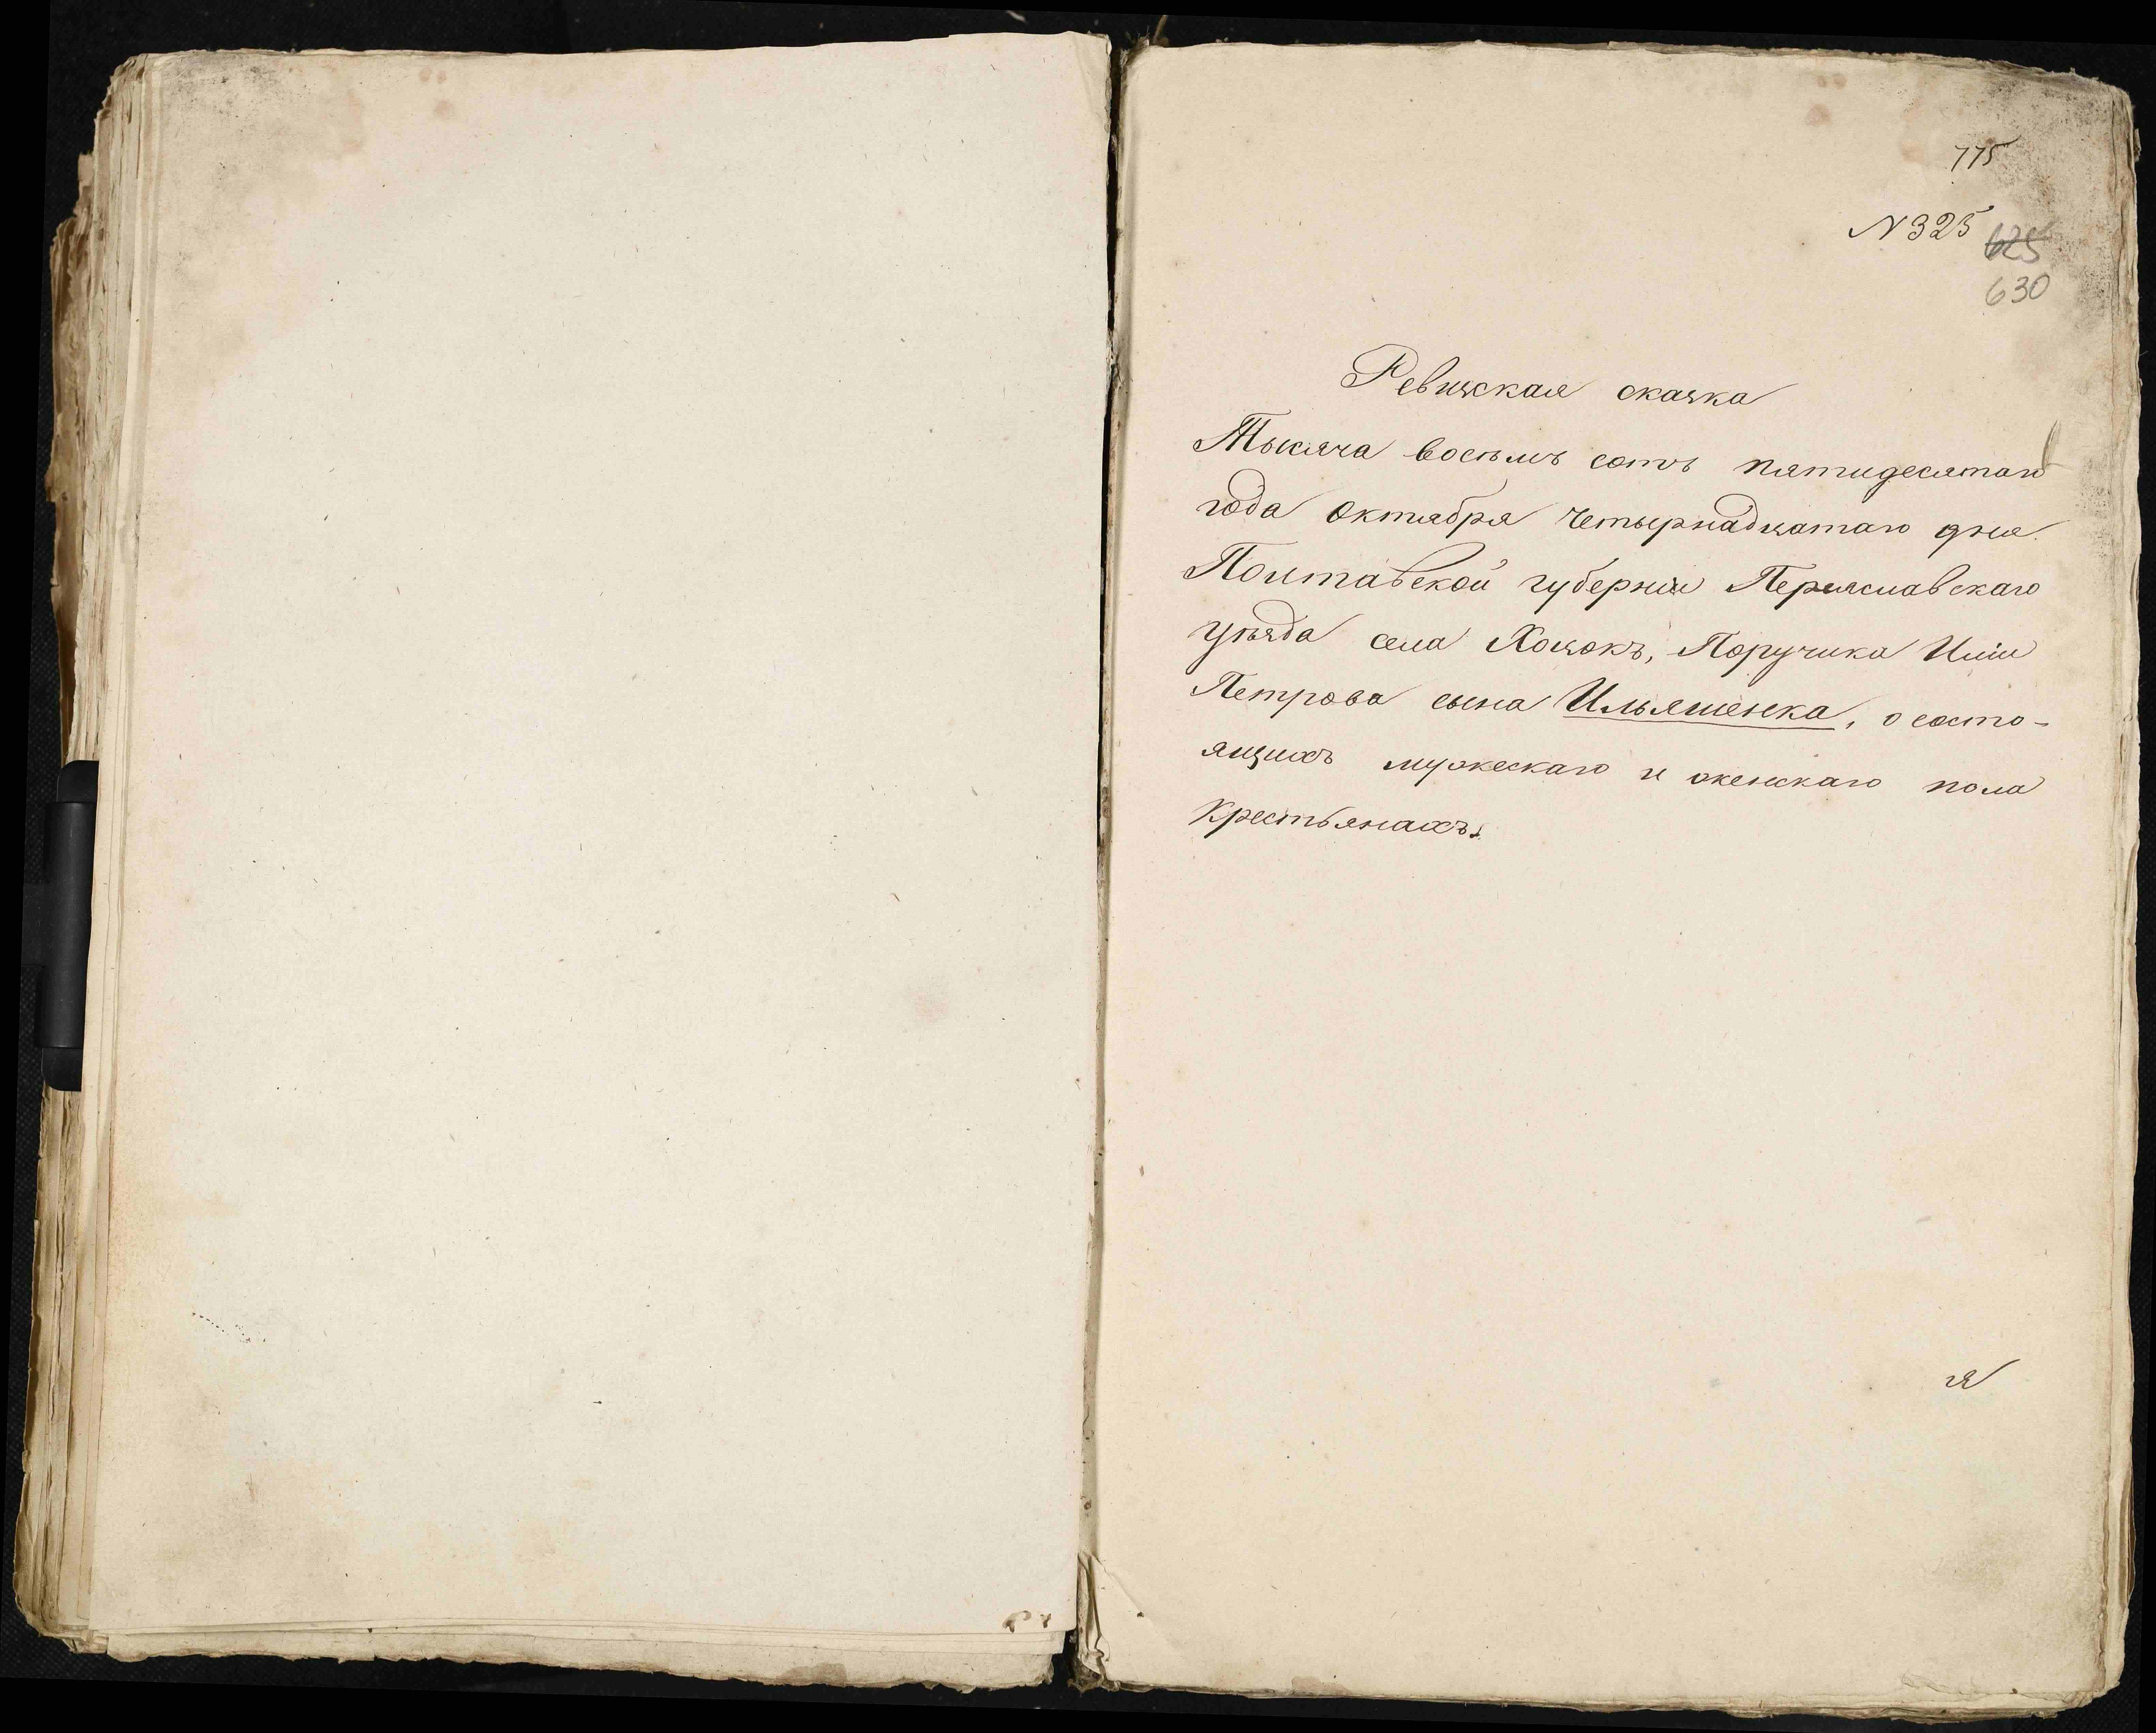 775
N 325
625
630
Ревизская сказка
Тысяча восемъ сотъ пятидесятаго
года Октября четырнадцатаго дня.
Полтавской губерніи Переяславскаго
уѣзда села Хоцокъ, Поручика Иліи
Петрова сына Ильяшенка, о состо-
ящихъ мужескаго и женскаго пола
Крестьянахъ.